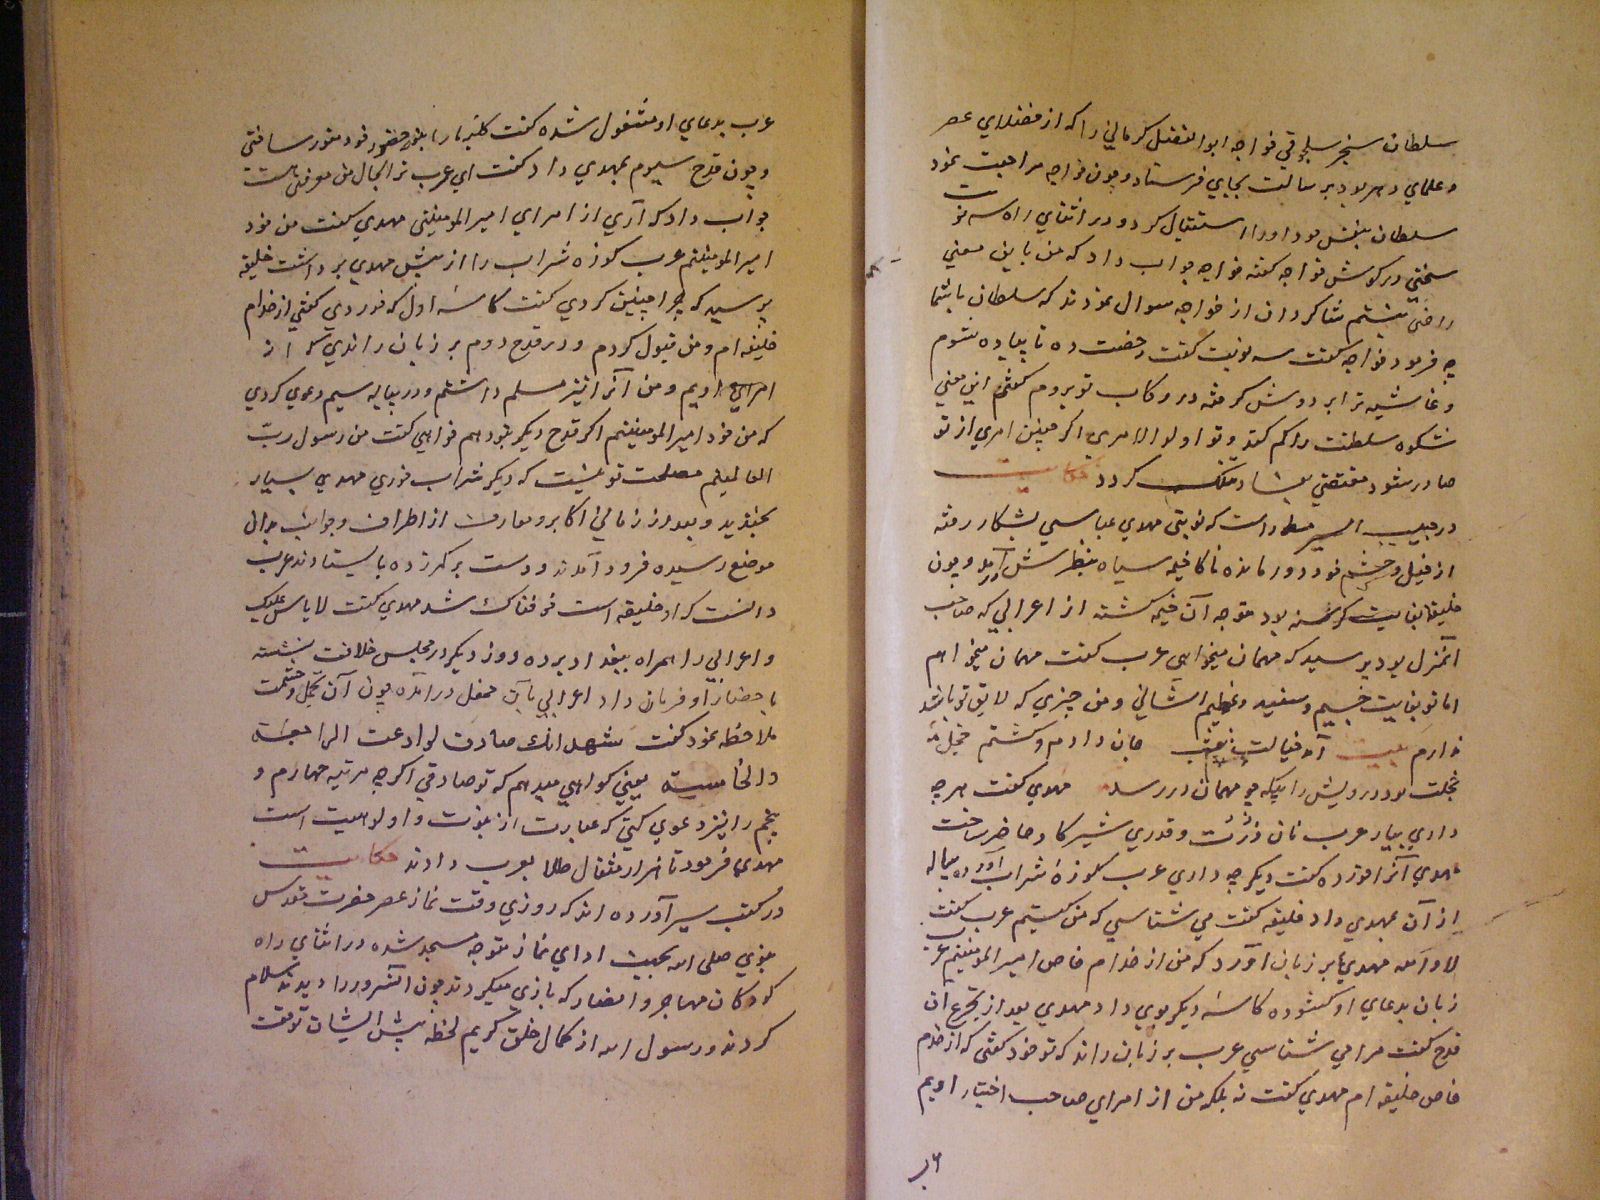 سلطان سنجر سلجوقی خواجه ابوالفضل کرمانی را که از فضلای عصر
و علمای دهر بود برسالت بجایی فرستاد و چون خواجه مراجعت نمود
سلطان بنفس خود او را استقبال کرد و در اثنای راه سه نوبت
سخنی در گوش خواجه گفته خواجه جواب داد که من باین معنی
راضی نیستم شاگردان از خواجه سوال نمودند که سلطان باشما
چه فرمود خواجه گفت سه نوبت گفت رخصت ده تا پیاده شوم
و غاشیه ترا بر دوش گرفته در رکاب تو بروم گفتم این معنی
شکوه سلطنت را کم کند و تو اولو الامری اگر چنین امری از تو
صادر شود مقتضی فساد ملک گردد حکایت
در حبیب السیر مسطور است که نوبتی مهدی عباسی بشکار رفته
از خیل و حشم خود دور مانده ناگاه خیمه سیاه بنظرش آمد و چون
خلیفه بغایت گرسنه بود متوجه آن خیمه گشته از اعرابی که صاحب
آنمنزل بود پرسید که مهمان میخواهی عرب گفت مهمان میخواهم
اما تو بغایت جسیم و سفید و عظیم الشانی و من چیزی که لایق تو باشد
ندارم بیت آمد خیالت نیمشب جان دادم و گشتم خجل
خجلت بود درویش را بیگه چو مهمان در رسد مهدی گفت هرچه
داری بیار عرب نان ذرت و قدری شیر گاو حاضر ساخت
مهدی آنرا خورده گفت دیگر چه داری عرب کوزه شراب آورده پیاله
از آن بمهدی داد خلیفه گفت می شناسی که من کیستم عرب گفت
لا والله مهدی بر زبان آورد که من از خدام خاص امیر المومنینم عرب
زبان بدعای او گشوده کاسه دیگر بوی داد مهدی بعد از تجرع آن
قدح گفت مرا می شناسی عرب بر زبان راند که تو خود گفتی که از خدام
خاص خلیفه ام مهدی گفت نه بلکه من از امرای صاحب اختیار اویم
عرب بدعای او مشغول شده گفت کلبه ما را بنور حضور خود منور ساختی
و چون قدح سیوم بمهدی داد گفت ای عرب ترا بحال من معرفتی هست
جواب داد که آری از امرای امیر المومنینی مهدی گفت من خود
امیر المومنینم عرب کوزه شراب را از پیش مهدی برداشت خلیفه
پرسید که چرا چنین کردی گفت کاسه اول که خوردی گفتی از خدام
خلیفه ام و من قبول کردم و در قدح دوم بر زبان راندی که از
امرای اویم و من آنرا نیز مسلم داشتم و در پیاله سیم دعوی کردی
که من خود امیر المومنینم اگر قدح دیگر بتو دهم خواهی گفت من رسول رب
العالمینم مصلحت تو نیست که دیگر شراب خوری مهدی بسیار
بخندید و بعد از زمانی اکابر و معارف از اطراف و جوانب بدان
موضع رسیده فرود آمدند و دست بر کمر زده بایستادند عرب
دانست که او خلیفه است خوفناک شد مهدی گفت لا باس علیک
و اعرابی را همراه ببغداد برده روز دیگر در مجلس خلافت نشسته
باحضار او فرمان داد اعرابی بآن محفل درآمده چون آن تجمل و حشمت
ملاحظه نمود گفت اشهد انک صادق لو ادعت الرابعة
والخامسة یعنی گواهی میدهم که تو صادقی اگرچه مرتبه چهارم و
پنجم را نیز دعوی کنی که عبارت از نبوت و الوهیت است
مهدی فرمود تا هزار مثقال طلا بعرب دادند حکایت
در کتب سیر آورده اند که روزی وقت نماز عصر حضرت مقدس
نبوی صلی الله بجهت ادای نماز متوجه مسجد شده در اثنای راه
کودکان مهاجر و انصار که بازی میکردند چون آنسرور را دیدند سلام
کردند و رسول الله از کمال خلق کریم لحظه پیش ایشان توقف